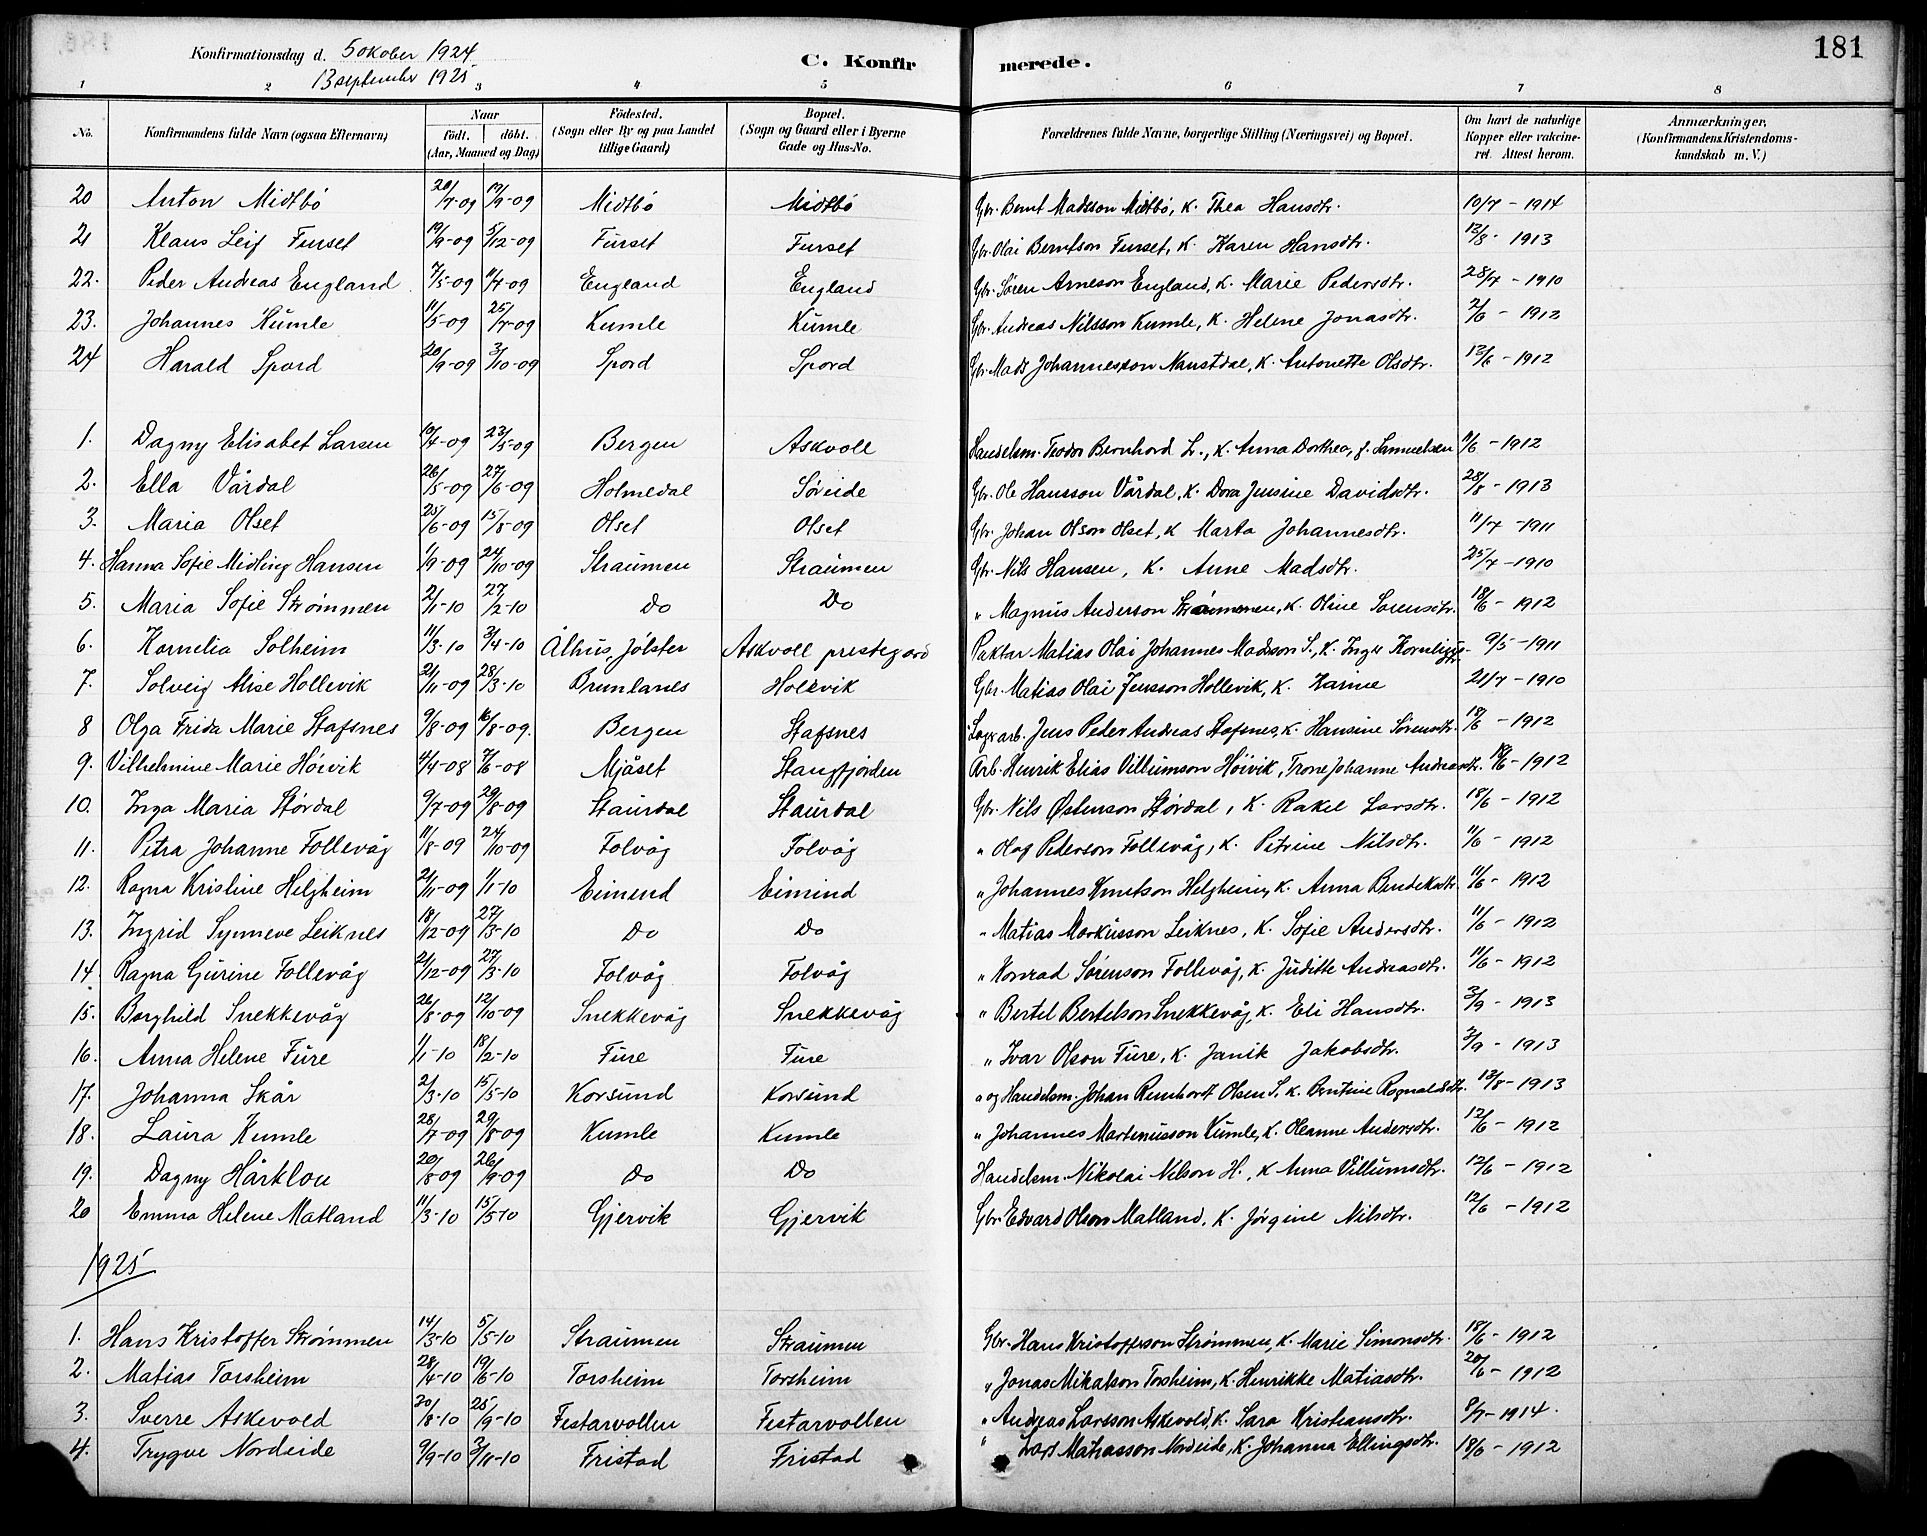 181
Konfirmationsdag d. 5 okober 1924
13 september 1925
C. Konfirmerede.
1 2 3 4 5 6 7 8
No. Konfirmandens fulde Navn (ogsaa Efternavn) Naar födt. döbt. (Aar, Maaned og Dag) Födested. (Sogn eller By og paa Landet tillige Gaard) Bopæl. (Sogn og Gaard eller i Byerne Gade og Hus-No. Forældrenes fulde Navne, borgerlige Stilling (Næringsvei) og Bopæl. Om havt de naturlige Kopper eller vakcineret. Attest herom. Anmærkninger. (Konfirmandens Kristendomskundskab m. V.)
20 Anton Midtbö 20/7-09 19/9-09 Midtbö Midtbö Gbr. Bernt Madsson Midtbö, K. Thea Hansdtr. 10/7 - 1914
21 Klaus Leif Furset 19/9-09 5/12-09 Furset Furset Gbr. Olai Berntson Furset, K. Karen Hansdtr. 13/8 - 1913
22. Peder Andreas England 7/5-09 11/7-09 England England Gbr. Sören Arneson England, K. Marie Pedersdtr. 28/7 - 1910
23. Johannes Kumle 11/5-09 25/7-09 Kumle Kumle Gbr. Andreas Nilsson Kumle, K. Helene Jonasdtr. 2/6 - 1912
24 Harald Spord 20/9-09 3/10-09 Spord Spord Gbr. Mads Johannesson Naustdal, K. Antonette Olsdtr. 12/6 - 1912
1. Dagny Elisabet Larsen 19/4-09 23/5-09 Bergen Askvoll Handelsm. Teodor Bernhard L., K. Anna Dorthea, f. Samuelsen 11/6 - 1912
2. Ella Vårdal 26/5-09 27/6-09 Holmedal Söreide Gbr. Ole Hansson Vårdal, K. Dora Jensine Davidsdtr. 28/8 - 1913
3. Maria Olset 25/6-09 15/8-09 Olset Olset Gbr. Johan Olson Olset, K Marta Johannesdtr. 11/7 - 1911
4. Hanna Sofie Midling Hansen 1/9-09 24/10-09 Straumen Straumen Gbr. Nils Hansen, K. Anne Madsdtr. 25/7 - 1910
5. Maria Sofie Strömmen 2/1-10 27/2-10 Do Do " Magnus Anderson Strömmen, K. Oline Sørensdtr. 18/6 - 1912
6. Kornelia Solheim 11/3-10 3/4-10 Ålhus, Jölster Askvoll prestegard Paktar Matias Olai Johannes Madsson S., K. Inger Korneliusdtr. 9/5 - 1911
7. Solveig Alise Hollevik 21/11-09 28/3-10 Brunlanes Hollevik Gbr. Matias Olai Jensson Hollevik, K. Karine 21/7 - 1910
8 Olga Frida Marie Stafsnes 9/8-09 16/8-09. Bergen Stafsnes Lagerarb. Jens Peder Andreas Stafsnes, K. Hansine Sörensdtr. 18/6 - 1912
9. Vilhelmine Marie Höivik 4/4-08 7/6-08 Mjåset Stangfjorden Arb. Henrik Elias Villumson Höivik, Trone Johanne Andreasdtr. 18/6 - 1912
10. Inga Maria Stördal 9/7-09 29/8-09 Staurdal Staurdal Gbr. Nils Östenson Stördal, K. Rakel Larsdtr. 18/6 - 1912
11. Petra Johanne Follevåg 11/8-09 24/10-09 Folvåg Folvåg " Olaf Pederson Follevåg, K. Petrine Nilsdtr. 11/6 - 1912
12. Ragna Kristine Helgheim 21/11-09 1/1-10 Eimend Eimind " Johannes Knutson Helgheim, K. Anna Bendiksdtr. 11/6 - 1912
13. Ingrid Synneve Leiknes 18/12-09 27/3-10 Do Do " Matias Markusson Leiknes, K. Sofie Andersdtr. 11/6 - 1912
14. Ragna Gurine Follevåg 21/12-09 27/3-10 Folvåg Folvåg " Konrad Sörenson Follevåg, K. Juditte Andreasdtr. 11/6 - 1912
15. Borghild Snekkevåg 26/8-09 12/10-09 Snekkevåg Snekkevåg " Bertel Bertelson Snekkevåg, K. Eli Hansdtr. 3/9 - 1913
16. Anna Helene Fure 1/1-10 18/2-10 Fure Fure " Ivar Olson Fure, K. Janik Jakobsdtr. 3/9 - 1913
17. Johanna Skår 2/3-10 15/5-10 Korsund Korsund " og Handelsm. Johan Reinhardt Olsen S. K. Bentine Ragnaldsdtr. 13/8 - 1913
18. Laura Kumle 28/7-09 29/8-09 Kumle Kumle " Johannes Martinusson Kumle, K. Oleanne Andersdtr. 12/6 - 1912
19. Dagny Hårklou 20/8-09 26/9-09 Do Do Handelsm. Nikolai Nilson H., K Anna Villumsdtr. 12/6 - 1912
20 Emma Helene Matland 11/3-10 15/5-10 Gjervik Gjervik Gbr. Edvard Olson Matland, K. Jörgine Nilsdtr. 12/6 - 1912
1925
1. Hans Kristoffer Strömmen 14/3-10 5/5-10 Straumen Straumen Gbr. Hans Kristofferson Strömmen, K. Marie Simonsdtr. 18/6 - 1912
2. Matias Torsheim 28/4-10 19/6-10 Torsheim Torsheim " Jonas Mikalson Torsheim, K. Henrikke Matiasdtr. 20/6 - 1912
3. Sverre Askevold 20/8-10 25/9-10 Festarvollen Festarvollen " Andreas Larsson Askevold, K. Sara Kristiansdtr. 9/7 - 1914.
4. Trygve Nordeide 9/9-10 3/11-10 Fristad Fristad " Lars Mathiasson Nordeide, K. Johanna Ellingsdtr. 18/6 - 1912